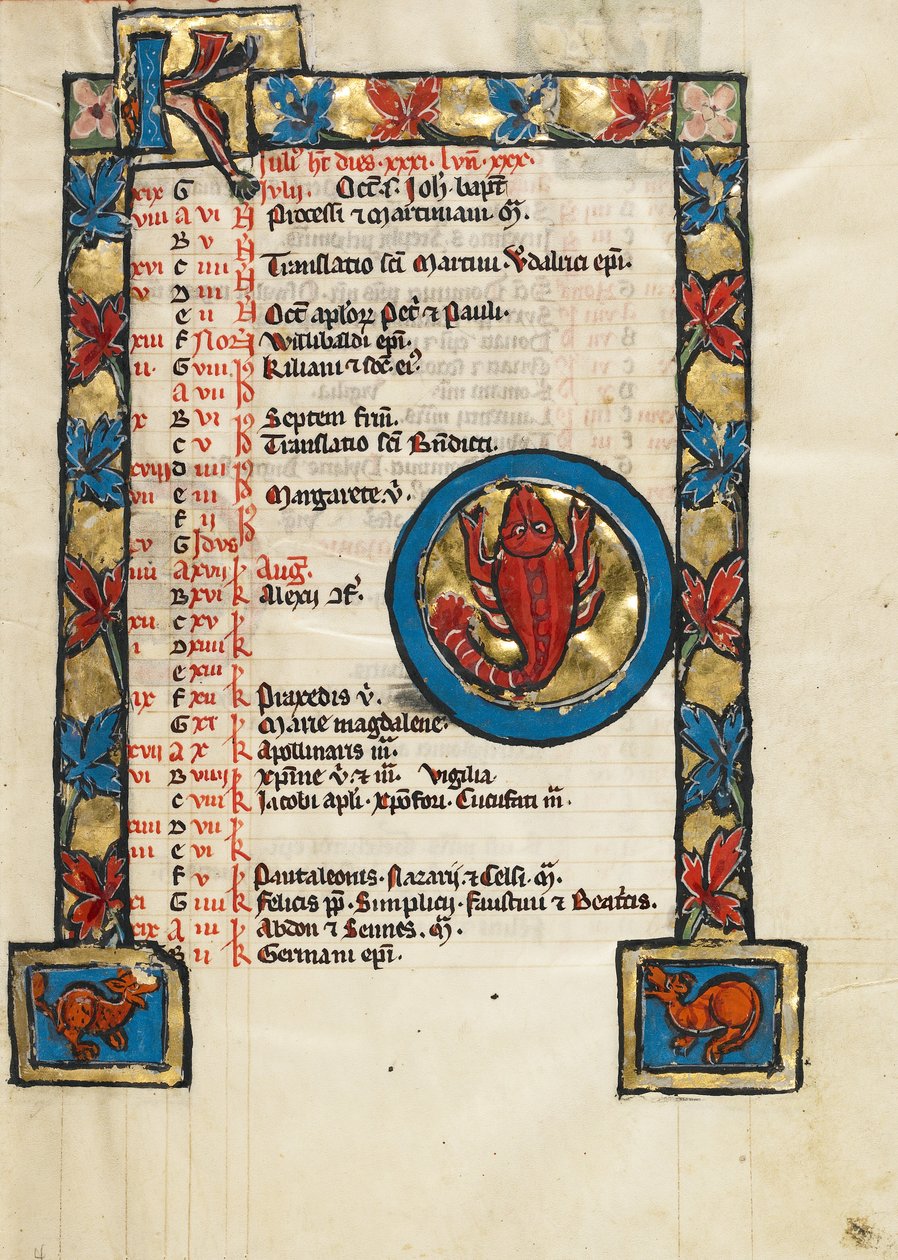 K
Juli᷒ ht dies · xxxi · lun̄ · xxx ·
xix G Julii · Oct̄ · s · Joh̄ bapt̄
viii A vi N Processi ⁊ Martiniani · m̄ ·
B v N
xvi C iiii N Translatio sc̄i Martini · Vdalrici ep̄i ·
v D iii N
e ii N Oct̄ apl̓oꝝ Pet̓ ⁊ Pauli ·
xiii F Noñ Willibaldi ep̄i ·
ii · G viii id᷒ Kiliani ⁊ soc̄ ei᷒
A vii id
x B vi id᷒ Septem fr̄m̄ ·
C v id Translatio sc̄i Bn̄dicti ·
xviii D iiii id᷒
vii e iii id Margarete · v̓ ·
F ii id᷒
xv G Idus
iiii A xvii k̓ Aug̓ ·
B xvi k Alexij ɔf̓ ·
xii C xv k̓
i D xiiii k
e xiii k̓
ix F xii k Praxedis v̓ ·
G xi k̓ Marie magdalene ·
xvii A x k Apollinaris m̄ ·
vi B viiii k̓ xp̄ine v̓ · ⁊ m̄ · Vigilia
C viii k Jacobi apl̓i · xp̄ofori · Cucufati m̄ ·
xiiii D vii k̓
iii e vi k
F v k̓ Pantaleonis · Nazarij · ⁊ Celsi · m̄ ·
xi G iiii k Felicis pp̄ · Simplicij · Faustini ⁊ Beat̓cis ·
xix A iii k̓ Abdon ⁊ Sennes · m̄ ·
B ii k Germani ep̄i ·